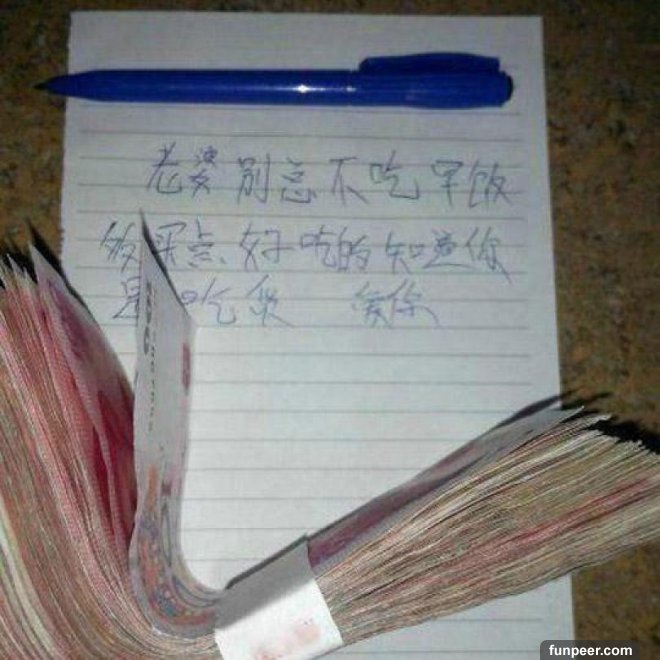 老婆 别总不吃早饭
你买点好吃的知道你
是吃货 爱你
100
funpeer.com